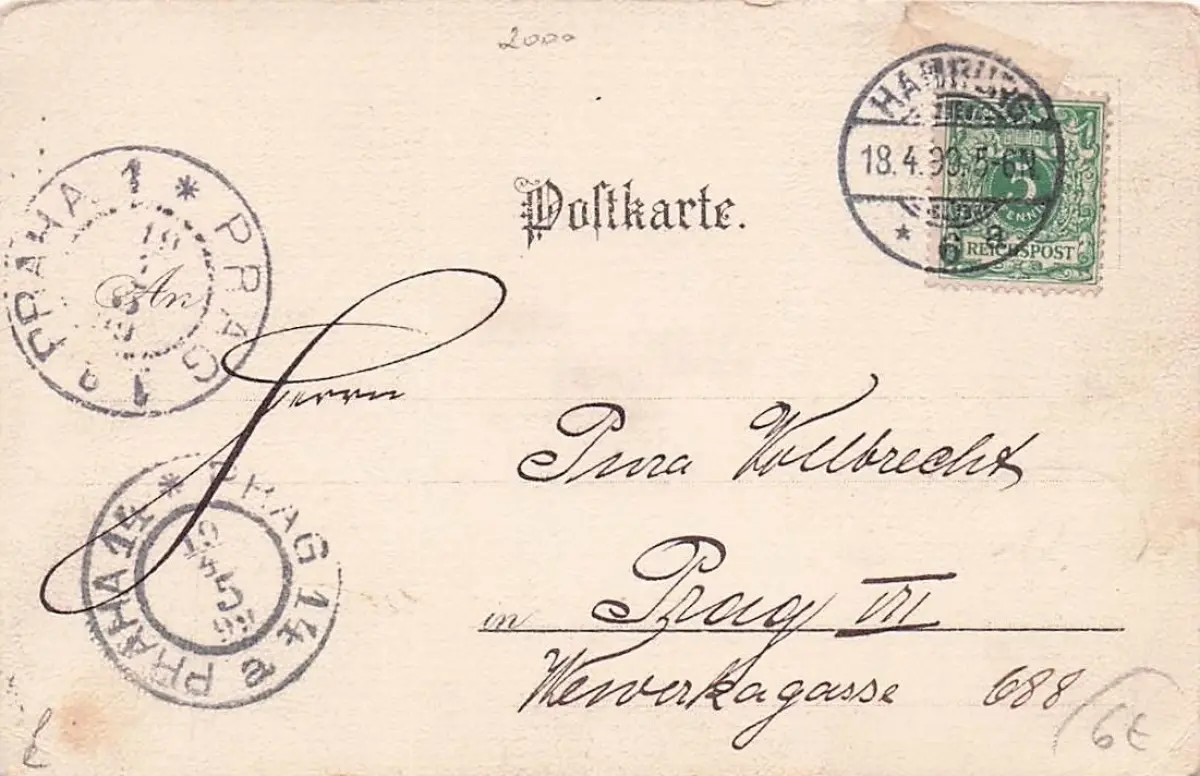 2000
HAMBURG
18.4.99.5-6N.
* 6 a
5
PFENNIG
REICHSPOST
Postkarte.
* PRAG 1 PRAHA 1
An
Herrn
Pura Vollbrecht
* PRAG 14 a PRAHA 14
19
4
5
99
in Prag VII
Wewerkagasse 688
6£